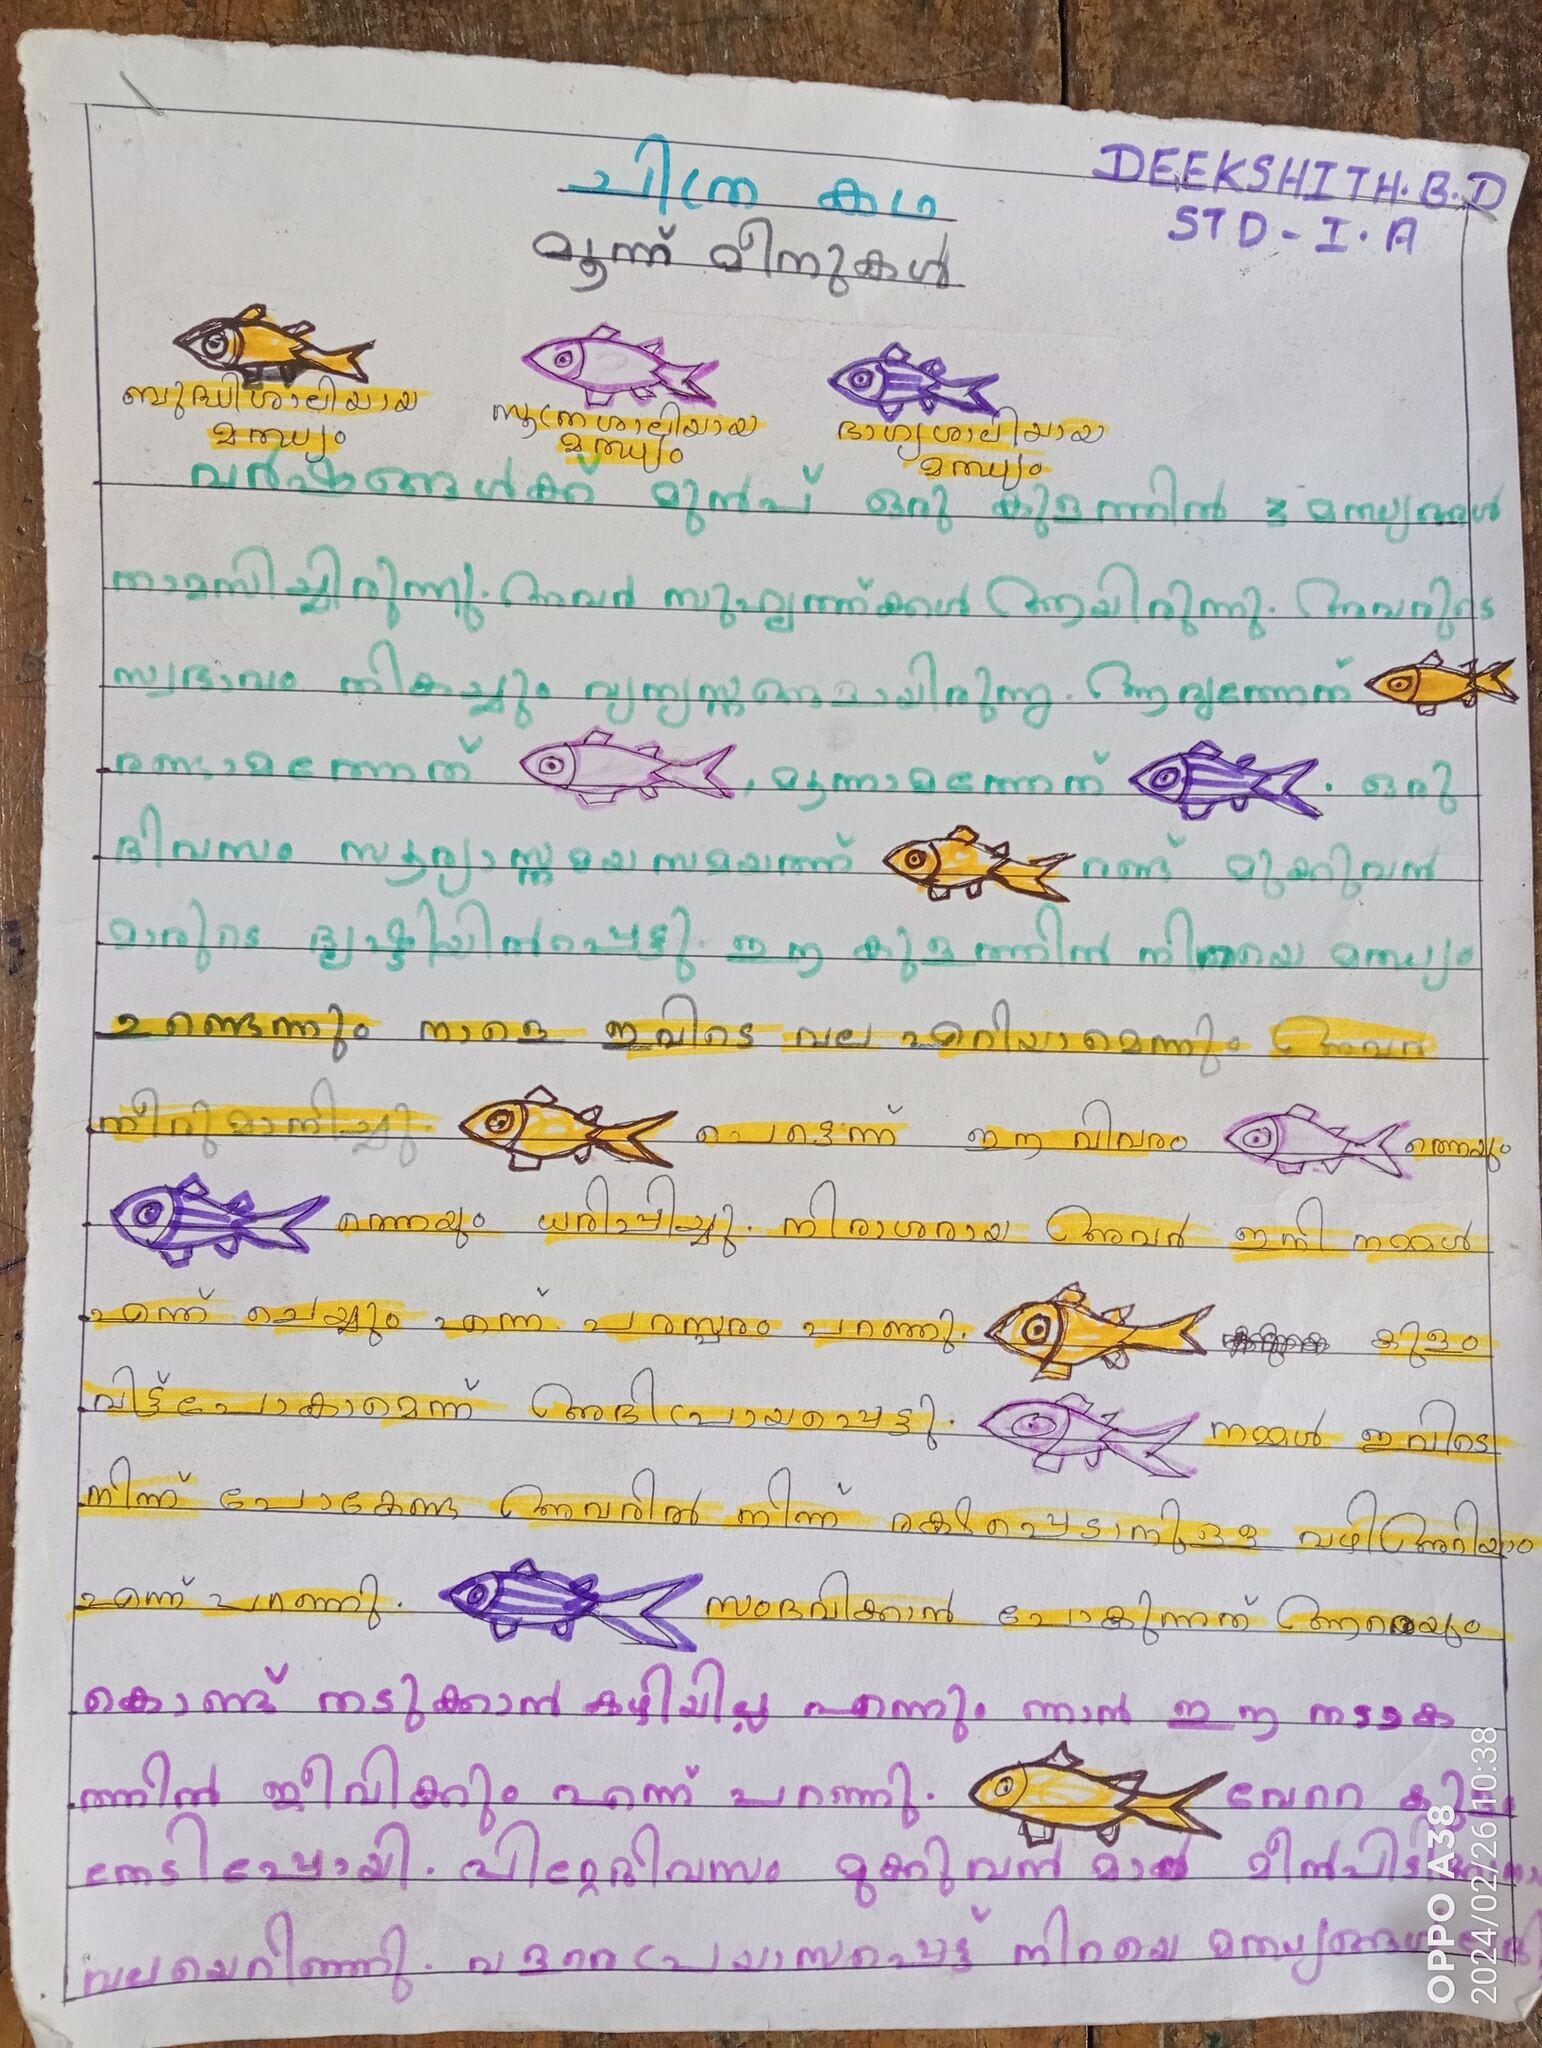 ചിത്ര കഥ
DEEKSHITH.B.D
STD-I.A
മൂന്ന് മീനുകൾ
ബുദ്ധിശാലിയായ
മത്സ്യം
സൂത്രശാലിയായ
മത്സ്യം
ഭാഗ്യശാലിയായ
മത്സ്യം
വർഷങ്ങൾക്ക് മുൻപ് ഒരു കുളത്തിൽ 3 മത്സ്യങ്ങൾ
താമസിച്ചിരുന്നു. അവർ സുഹൃത്ത്ക്കൾ ആയിരുന്നു. അവരുടെ
സ്വഭാവം തികച്ചും വ്യത്യസ്തങ്ങളായിരുന്നു. ആദ്യത്തേത്
രണ്ടാമത്തേത് , മൂന്നാമത്തേത് . ഒരു
ദിവസം സൂര്യാസ്തമയസമയത്ത് രണ്ട് മുക്കുവൻ
മാരുടെ ദൃഷ്ടിയിൽപ്പെട്ടു. ഈ കുളത്തിൽ നിറയെ മത്സ്യം
ഉണ്ടെന്നും നാളെ ഇവിടെ വല എറിയാമെന്നും അവർ
തീരുമാനിച്ചു. പെട്ടെന്ന് ഈ വിവരം ത്തെയും
ത്തെയും ധരിപ്പിച്ചു. നിരാശരായ അവർ ഇനി നമ്മൾ
എന്ത് ചെയ്യും എന്ന് പരസ്പരം പറഞ്ഞു. കുളം
വിട്ട്പോകാമെന്ന് അഭിപ്രായപ്പെട്ടു. നമ്മൾ ഇവിടെ
നിന്ന് പോകേണ്ട അവരിൽ നിന്ന് രക്ഷപ്പെടാനുള്ള വഴിഅറിയാം
എന്ന് പറഞ്ഞു. സംഭവിക്കാൻ പോകുന്നത് ആരെയും
കൊണ്ട് തടുക്കാൻ കഴിയില്ല എന്നും ഞാൻ ഈ തടാക
ത്തിൽ ജീവിക്കും എന്ന് പറഞ്ഞു. വേറെ കുളം
തേടിപ്പോയി. പിറ്റേദിവസം മുക്കുവൻ മാർ
വലയെറിഞ്ഞു. വളരെ പ്രയാസപ്പെട്ട് നിറയെ
OPPO A38
2024/02/26 10:38